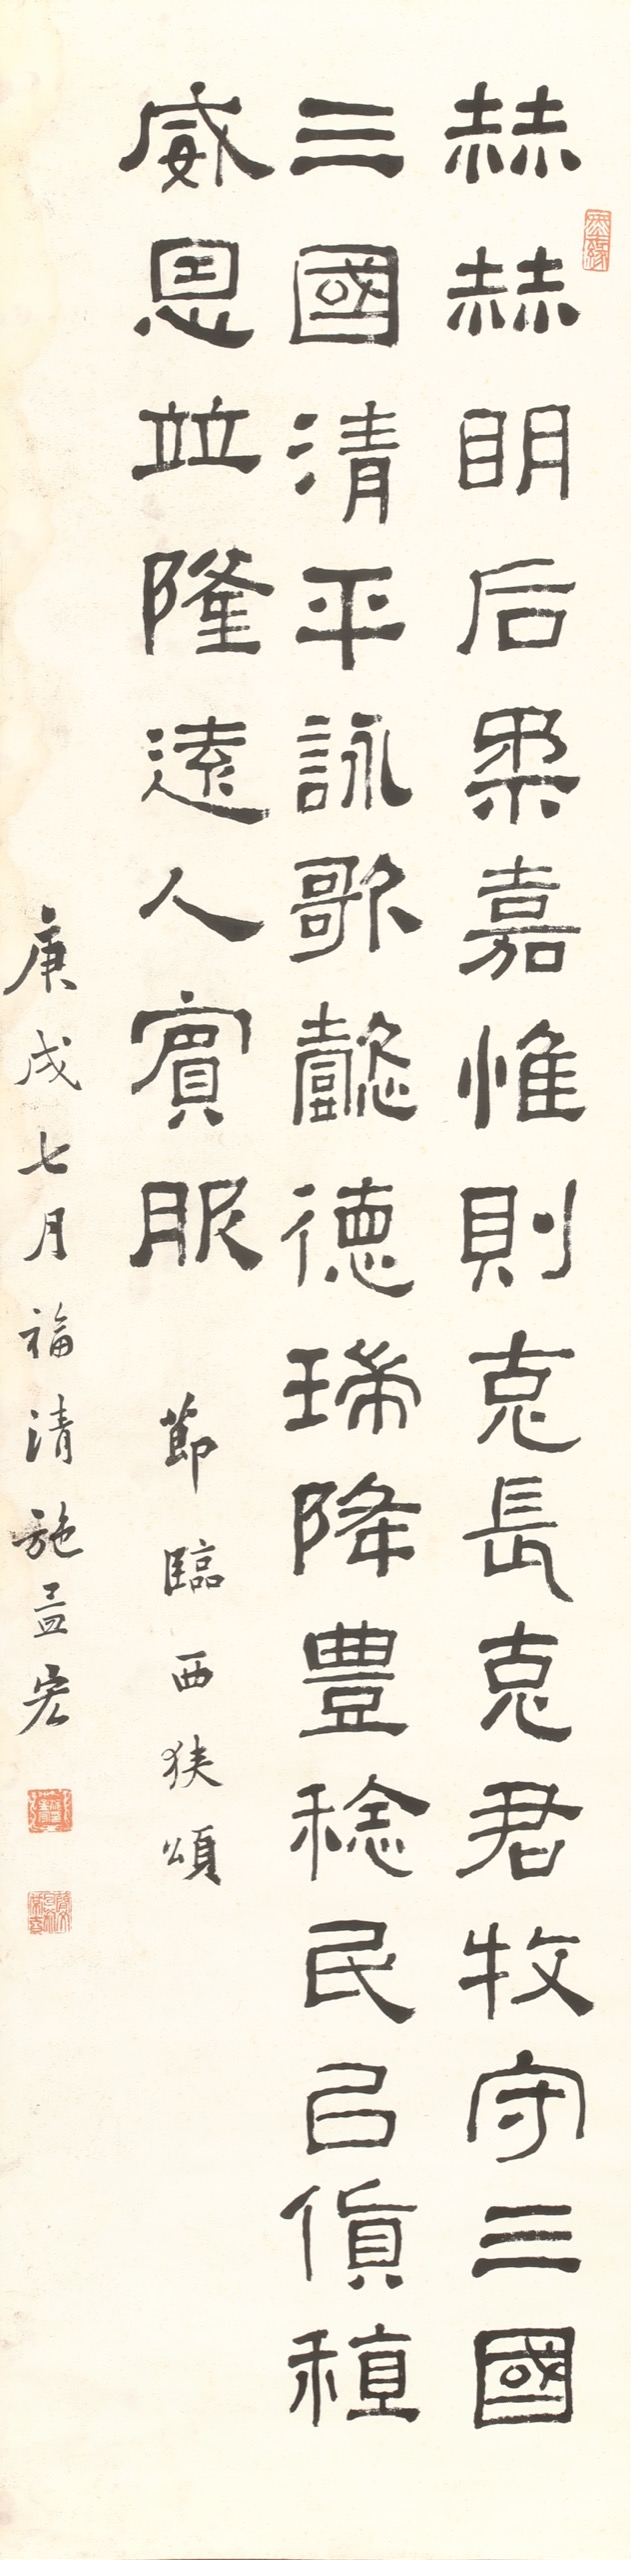 赫赫明后柔嘉惟則克長克君牧守三國
三國清平詠歌懿德瑞降豊稔民以貨稙
威恩並隆遠人賓服
節臨西狹頌
庚戌七月福清施孟宏